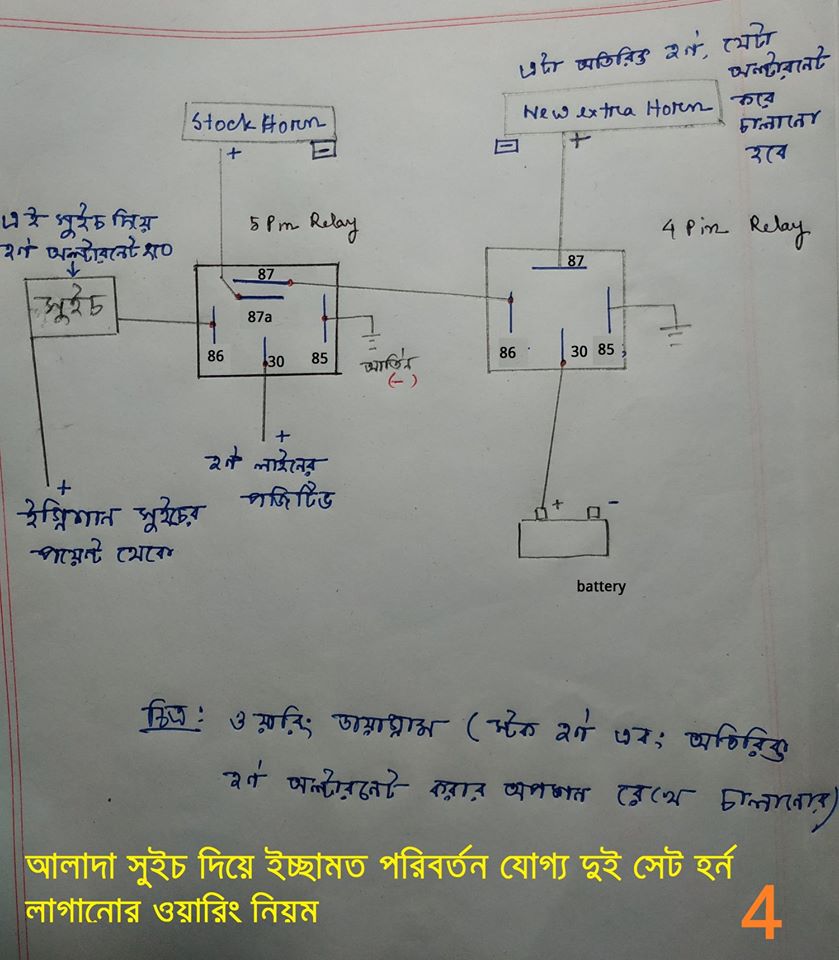 এটা অতিরিক্ত হর্ন, যেটা
অল্টারনেট
করে
চালানো
হবে
Stock Horn
New extra Horn
+
-
-
+
এই সুইচ দিয়ে
হর্ন অল্টারনেট হবে
5 Pin Relay
4 Pin Relay
সুইচ
87
87a
86
30
85
87
86
30
85
আর্থিন
(-)
+
হর্ন লাইনের
পজিটিভ
+
ইগ্নিশান সুইচের
পয়েন্ট থেকে
+
-
battery
চিত্র: ওয়ারিং ডায়াগ্রাম (স্টক হর্ন এবং অতিরিক্ত
হর্ন অল্টারনেট করার অপশন রেখে চালানোর)
আলাদা সুইচ দিয়ে ইচ্ছামত পরিবর্তন যোগ্য দুই সেট হর্ন
লাগানোর ওয়ারিং নিয়ম
4